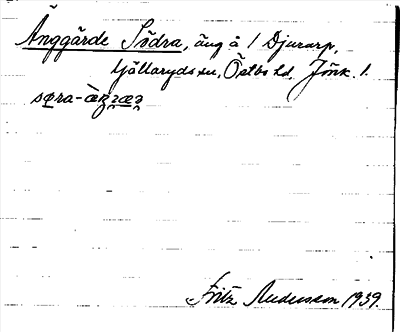 Änggärde Södra, äng å 1 Djurarp,
Kjällaryds sn, Östbo hd. Jönk. l.
Fritz Andersson 1939.